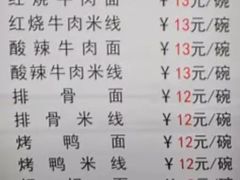 红烧牛肉面 ¥13元/碗
红烧牛肉米线 ¥13元/碗
酸辣牛肉面 ¥13元/碗
酸辣牛肉米线 ¥13元/碗
排骨面 ¥12元/碗
排骨米线 ¥12元/碗
烤鸭面 ¥12元/碗
烤鸭米线 ¥12元/碗